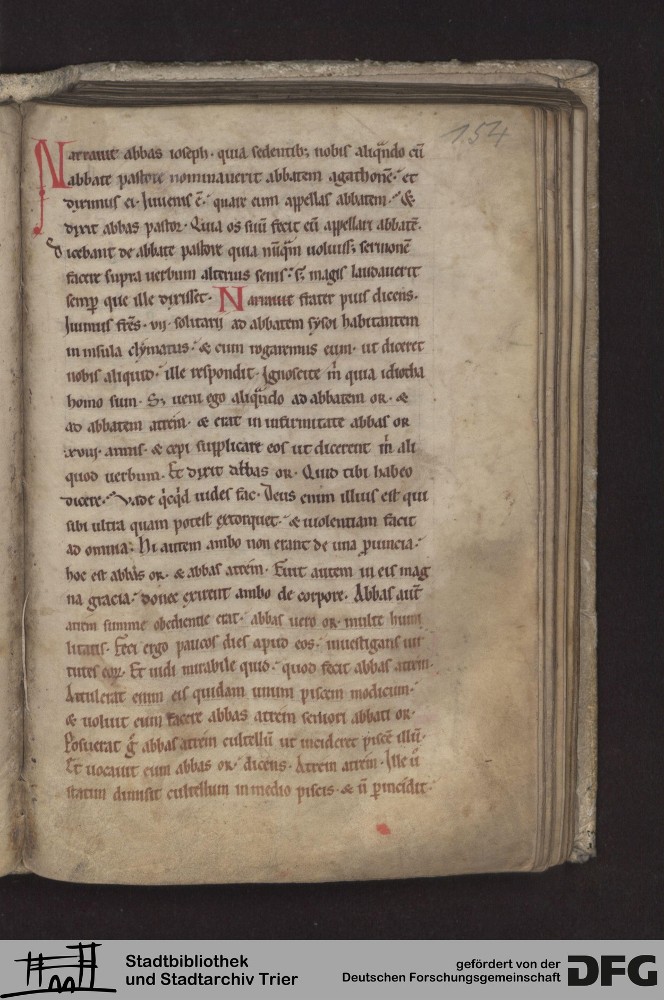 154
Narrauit abbas ioseph· quia sedentib; nobis aliqͣndo cū
abbate pastore nominauerit abbatem agathonē· et
diximus ei· Iuuenis ē· quare eum appellas abbatem· &
dixit abbas pastor· Quia os suū fecit eū appellari abbatē·
Dicebant de abbate pastore quia nūqͣm uoluiss; sermonē
facere supra uerbum alterius senis· s; magis laudauerit
semp̄ que ille dixisset· Narrauit frater pius dicens·
Iuimus fr̄es· vii· solitarij ad abbatem sysoi habitantem
in insula clymatus· & cum rogaremus eum· ut diceret
nobis aliquid· ille respondit· Ignoscite m̄ quia idiotha
homo sum· S; ueni ego aliqͣndo ad abbatem or· &
ad abbatem attein· & erat in infirmitate abbas or
.xviij· annis· & cepi supplicare eos ut dicerent m̄ ali
quod uerbum· Et dixit abbas or· Quid tibi habeo
dicere· Vade qͥcqͥd uides fac· Deus enim illius est qui
sibi ultra quam potest extorquet· & uiolentiam facit
ad omnia· Hi autem ambo non erant de una ꝓuincia·
hoc est abbas or· & abbas attein· Fuit autem in eis mag
na gracia· donec exirent ambo de corpore· Abbas aut̄
attein summe obedientie erat· abbas uero or· multe humi
litatis· Feci ergo paucos dies apud eos· inuestigans uir
tutes eoꝝ· Et uidi mirabile quid· quod fecit abbas attein·
Attulerat enim eis quidam unum piscem modicum·
& uoluit eum facere abbas attein seniori abbati or·
Posuerat gͦ abbas attein cultellū ut incideret piscē illū·
Et uocauit eum abbas or· dicens· Attein attein· Ille u͛
statim dimisit cultellum in medio piscis· & n̄ ꝑincidit·
Stadtbibliothek
und Stadtarchiv Trier
gefördert von der
Deutschen Forschungsgemeinschaft
DFG